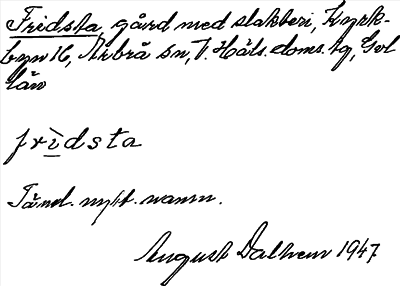 Fridsta, gård med slakteri, Kyrk-
byn 16, Arbrå sn, V. Häls. doms. tg, Gvl
län
frìdsta
Tänd. nytt namn.
August Dalhem 1947